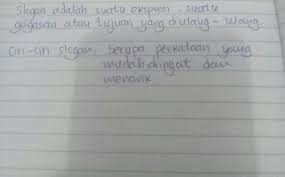 Slogan adalah suatu ekspresi suatu
gagasan atau tujuan yang diulang - ulang.
Ciri-ciri slogan, berupa perkataan yang
mudah diingat dan
menarik